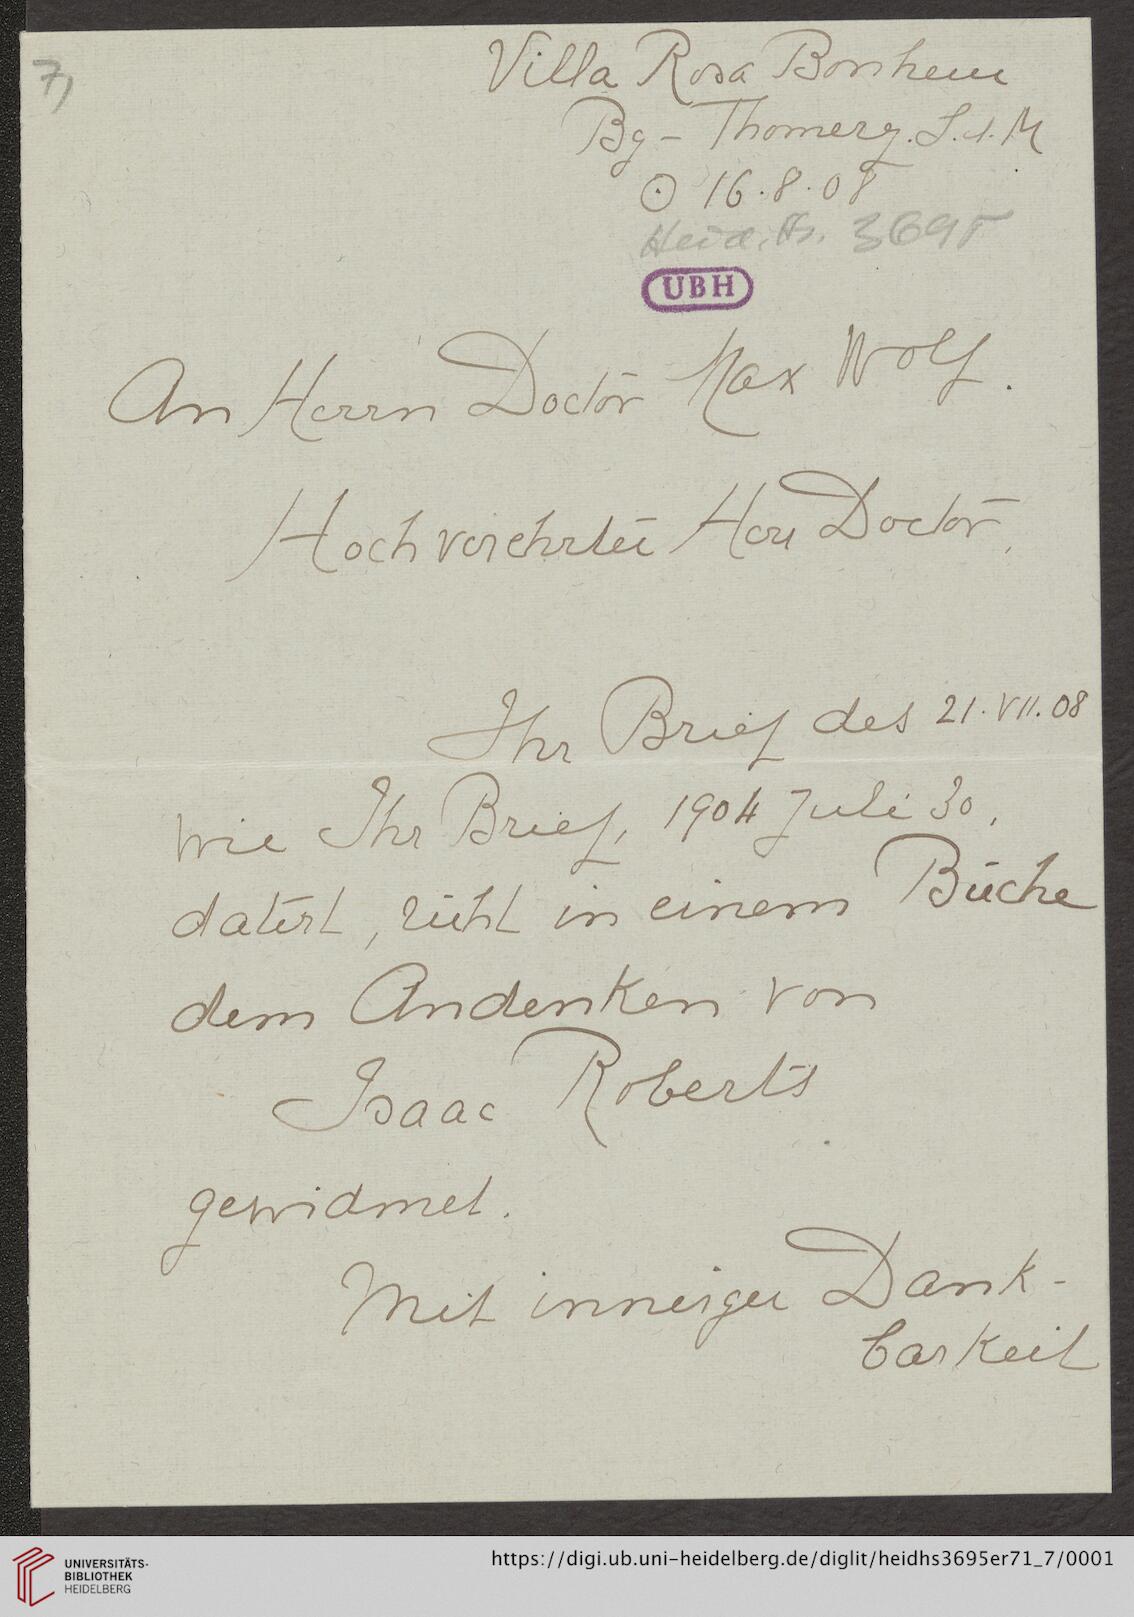 7)
Villa Rosa Bonheur
By – Thomery. S. et. M
⊙ 16.8.08
Heid. Hs. 3695
UBH
An Herrn Doctor Max Wolf.
Hochverehrter Herr Doctor,
Ihr Brief des 21.VII.08
wie Ihr Brief, 1904 Juli 30,
datirt, ruht in einem Buche
dem Andenken von
Isaac Roberts
gewidmet.
Mit inniger Dank-
barkeit
UNIVERSITÄTS-
BIBLIOTHEK
HEIDELBERG
https://digi.ub.uni-heidelberg.de/diglit/heidhs3695er71_7/0001